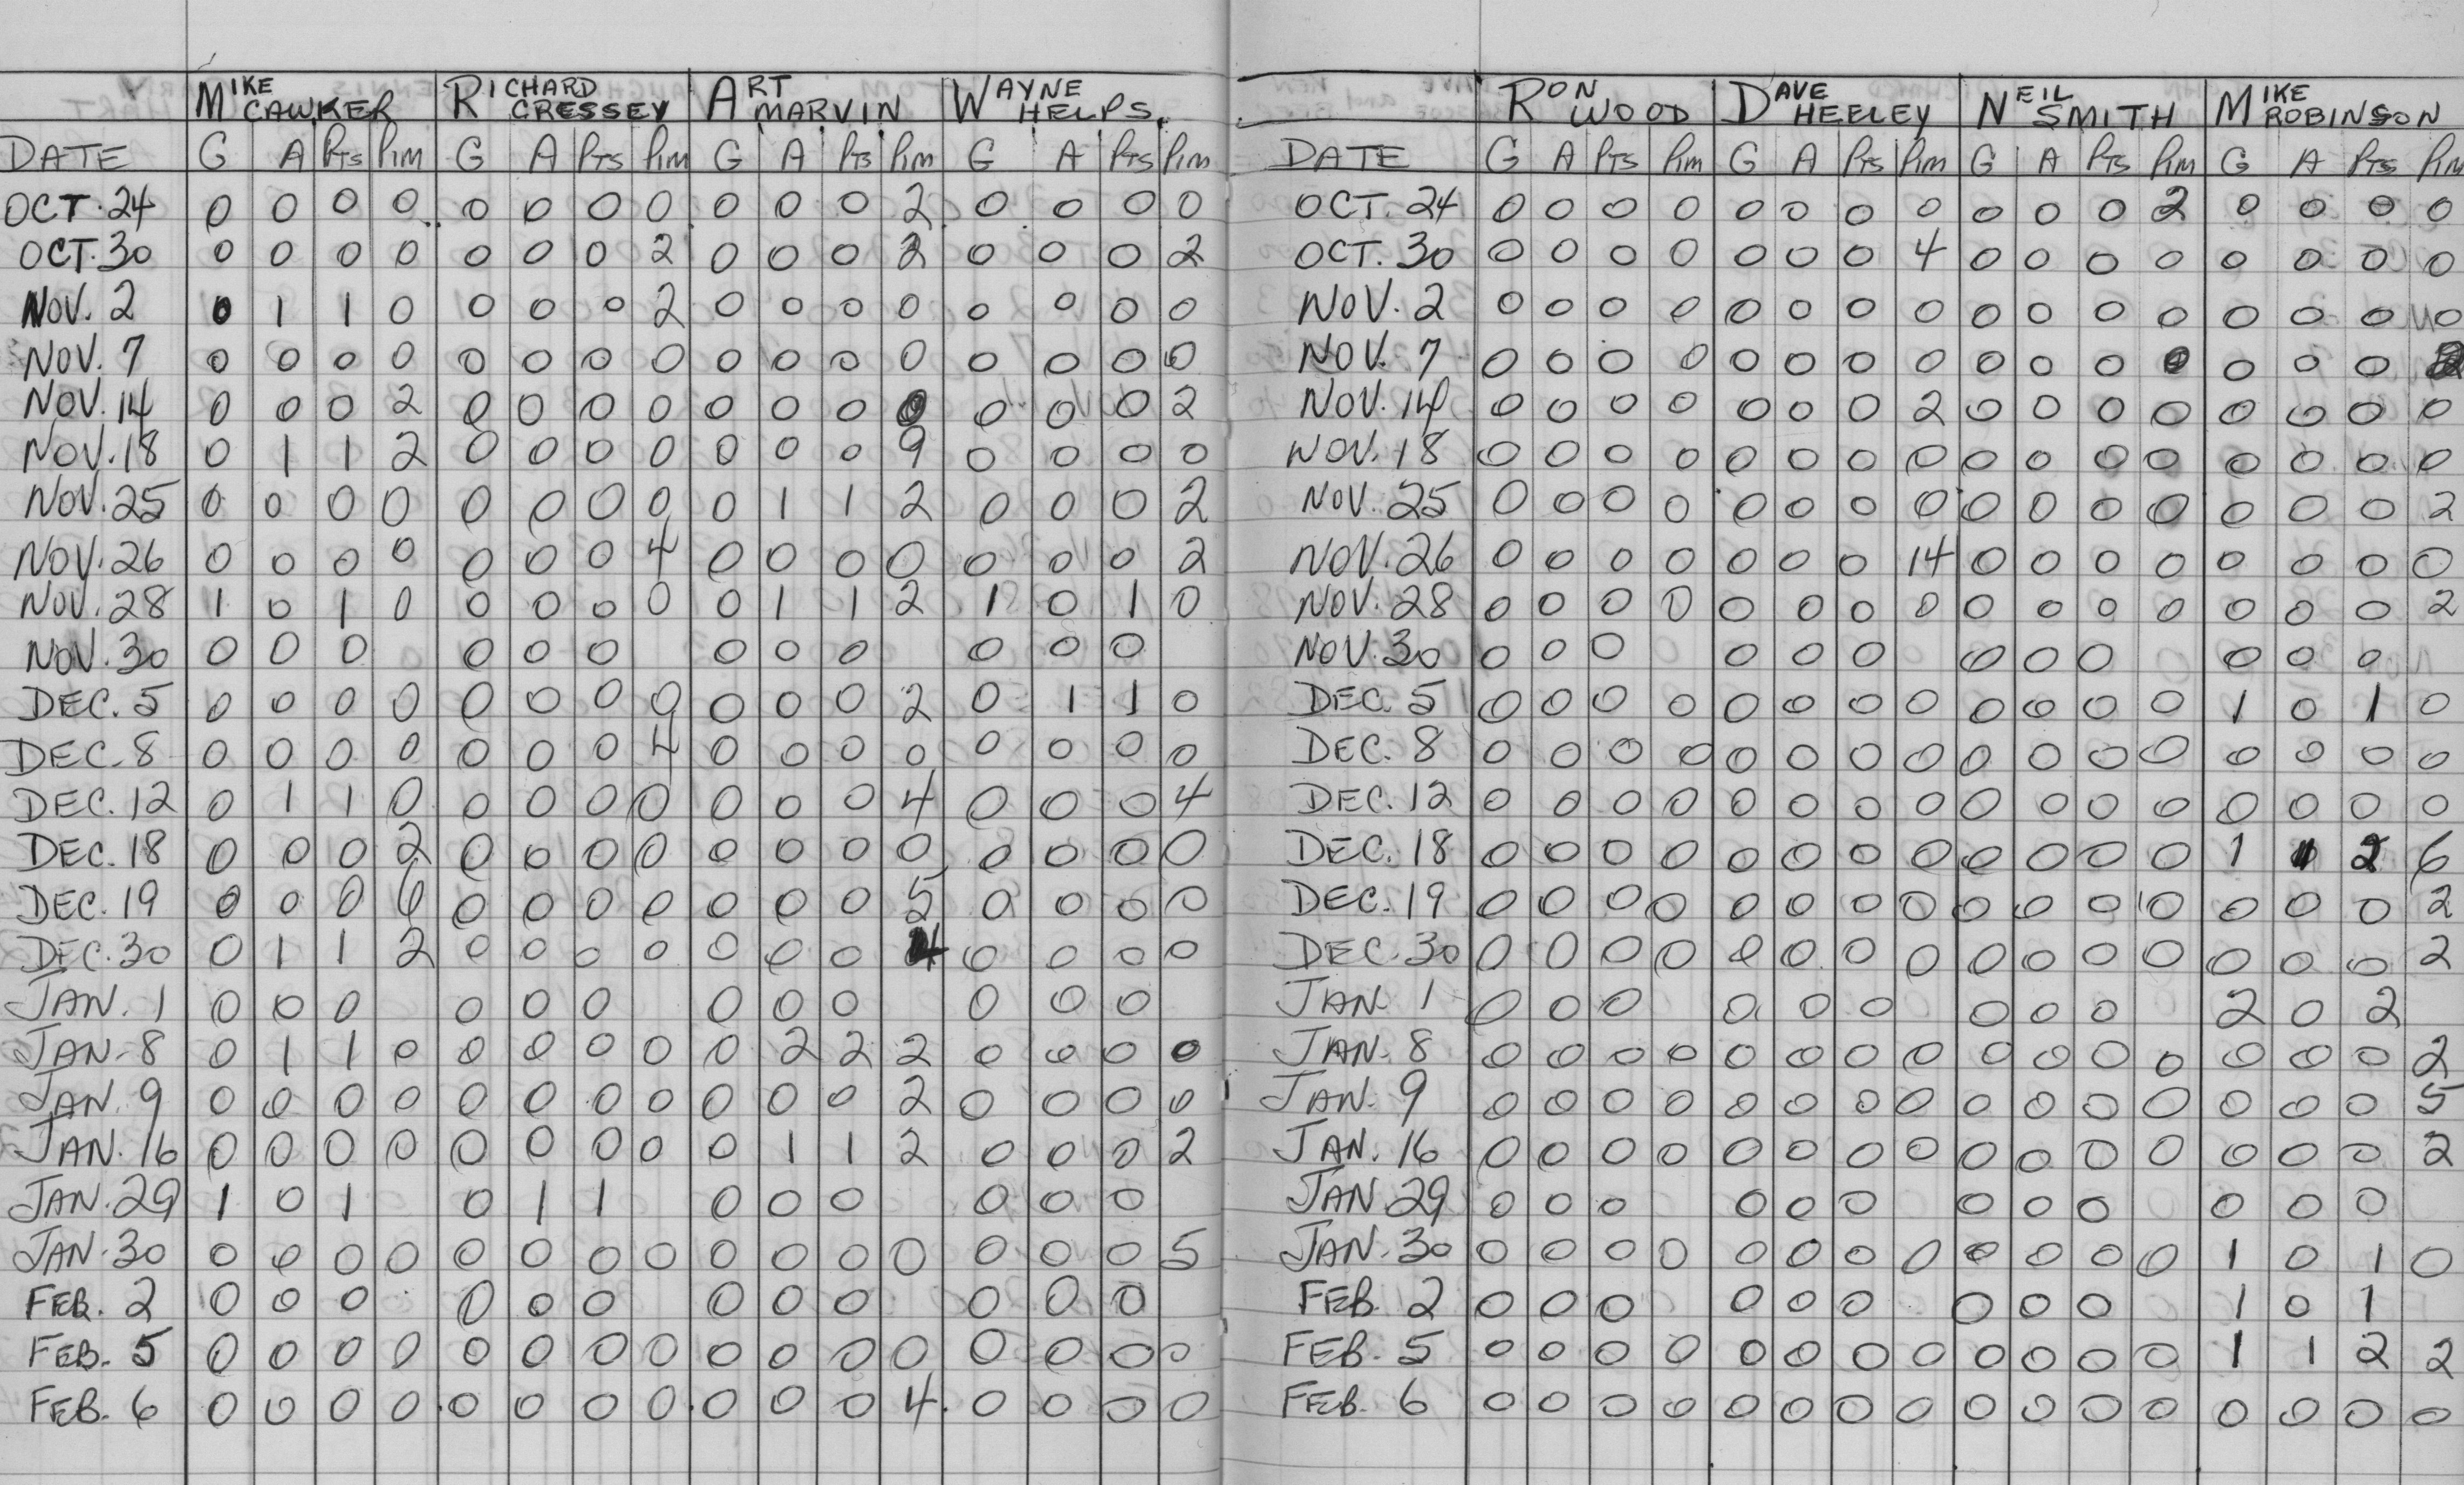 MIKE CAWKER RICHARD CRESSEY ART MARVIN WAYNE HELPS
DATE G A PTS PIM G A PTS PIM G A PTS PIM G A PTS PIM
OCT. 24 0 0 0 0 0 0 0 0 0 0 0 2 0 0 0 0
OCT. 30 0 0 0 0 0 0 0 2 0 0 0 2 0 0 0 2
NOV. 2 0 1 1 0 0 0 0 2 0 0 0 0 0 0 0 0
NOV. 7 0 0 0 0 0 0 0 0 0 0 0 0 0 0 0 0
NOV. 14 0 0 0 2 0 0 0 0 0 0 0 0 0 0 0 2
NOV. 18 0 1 1 2 0 0 0 0 0 0 0 9 0 0 0 0
NOV. 25 0 0 0 0 0 0 0 0 0 1 1 2 0 0 0 2
NOV. 26 0 0 0 0 0 0 0 4 0 0 0 0 0 0 0 2
NOV. 28 1 0 1 0 0 0 0 0 0 1 1 2 1 0 1 0
NOV. 30 0 0 0 0 0 0 0 0 0 0 0 0
DEC. 5 0 0 0 0 0 0 0 0 0 0 0 2 0 1 1 0
DEC. 8 0 0 0 0 0 0 0 4 0 0 0 0 0 0 0 0
DEC. 12 0 1 1 0 0 0 0 0 0 0 0 4 0 0 0 4
DEC. 18 0 0 0 2 0 0 0 0 0 0 0 0 0 0 0 0
DEC. 19 0 0 0 0 0 0 0 0 0 0 5 0 0 0 0
DEC. 30 0 1 1 2 0 0 0 0 0 0 0 4 0 0 0 0
JAN. 1 0 0 0 0 0 0 0 0 0 0 0 0
JAN. 8 0 1 1 0 0 0 0 0 0 2 2 2 0 0 0 0
JAN. 9 0 0 0 0 0 0 0 0 0 0 0 2 0 0 0 0
JAN. 16 0 0 0 0 0 0 0 0 0 1 1 2 0 0 0 2
JAN. 29 1 0 1 0 1 1 0 0 0 0 0 0
JAN. 30 0 0 0 0 0 0 0 0 0 0 0 0 0 0 0 5
FEB. 2 0 0 0 0 0 0 0 0 0 0 0 0
FEB. 5 0 0 0 0 0 0 0 0 0 0 0 0 0 0 0 0
FEB. 6 0 0 0 0 0 0 0 0 0 0 0 4 0 0 0 0
RON WOOD DAVE HEELEY NEIL SMITH MIKE ROBINSON
DATE G A PTS PIM G A PTS PIM G A PTS PIM G A PTS PIM
OCT. 24 0 0 0 0 0 0 0 0 0 0 0 2 0 0 0 0
OCT. 30 0 0 0 0 0 0 0 4 0 0 0 0 0 0 0 0
NOV. 2 0 0 0 0 0 0 0 0 0 0 0 0 0 0 0 0
NOV. 7 0 0 0 0 0 0 0 0 0 0 0 0 0 0 0 2
NOV. 14 0 0 0 0 0 0 0 2 0 0 0 0 0 0 0 0
NOV. 18 0 0 0 0 0 0 0 0 0 0 0 0 0 0 0 0
NOV. 25 0 0 0 0 0 0 0 0 0 0 0 0 0 0 0 2
NOV. 26 0 0 0 0 0 0 0 14 0 0 0 0 0 0 0 0
NOV. 28 0 0 0 0 0 0 0 0 0 0 0 0 0 0 0 2
NOV. 30 0 0 0 0 0 0 0 0 0 0 0 0
DEC. 5 0 0 0 0 0 0 0 0 0 0 0 0 1 0 1 0
DEC. 8 0 0 0 0 0 0 0 0 0 0 0 0 0 0 0 0
DEC. 12 0 0 0 0 0 0 0 0 0 0 0 0 0 0 0 0
DEC. 18 0 0 0 0 0 0 0 0 0 0 0 0 1 1 2 6
DEC. 19 0 0 0 0 0 0 0 0 0 0 0 10 0 0 0 2
DEC. 30 0 0 0 0 0 0 0 0 0 0 0 0 0 0 0 2
JAN. 1 0 0 0 0 0 0 0 0 0 2 0 2
JAN. 8 0 0 0 0 0 0 0 0 0 0 0 0 0 0 0 2
JAN. 9 0 0 0 0 0 0 0 0 0 0 0 0 0 0 0 5
JAN. 16 0 0 0 0 0 0 0 0 0 0 0 0 0 0 0 2
JAN. 29 0 0 0 0 0 0 0 0 0 0 0 0
JAN. 30 0 0 0 0 0 0 0 0 0 0 0 0 1 0 1 0
FEB. 2 0 0 0 0 0 0 0 0 0 1 0 1
FEB. 5 0 0 0 0 0 0 0 0 0 0 0 0 1 1 2 2
FEB. 6 0 0 0 0 0 0 0 0 0 0 0 0 0 0 0 0